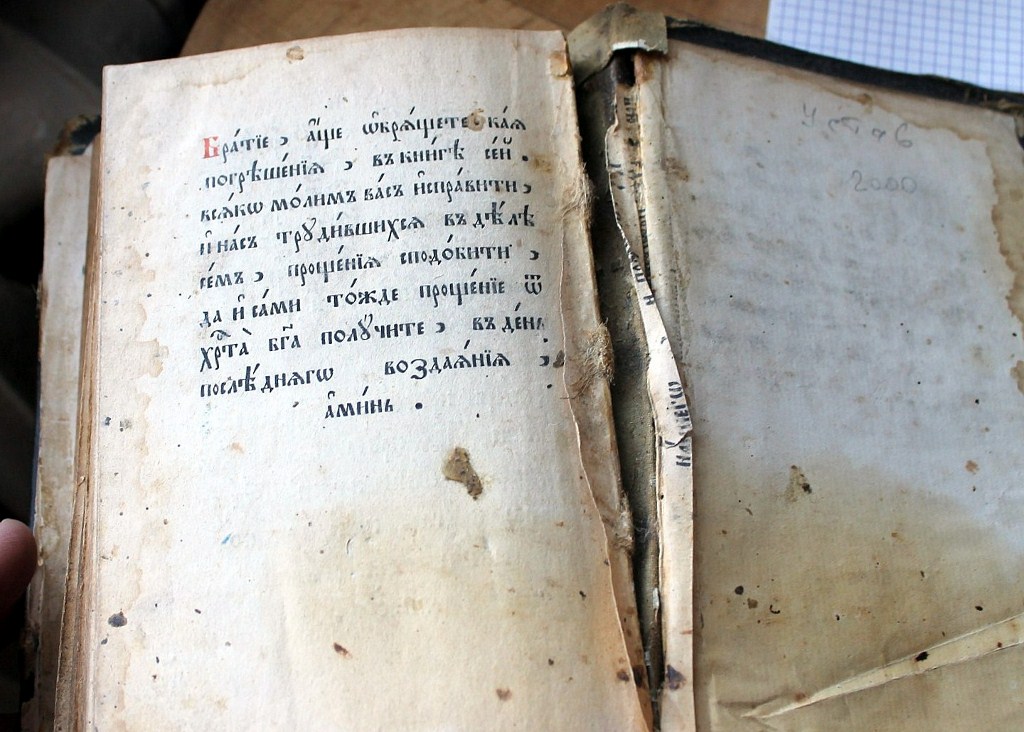 Бра́тїе , а҆́ще ѡ҆брѧ́щете каѧ
погрѣше́нїѧ , въ кни́гѣ се́й .
всѧ́кѡ мо́лимъ ва́съ и҆спра́вити ,
и҆ на́съ трꙋди́вшихсѧ въ дѣ́лѣ
се́мъ , проще́нїѧ сподо́бити ,
да и҆ са́ми то́жде проще́нїе ѿ
хрⷭ҇та̀ бг҃а полꙋ́чите , въ де́нь
послѣ́днѧгѡ воздаѧ́нїѧ ,
а҆ми́нь .
Устав
2000